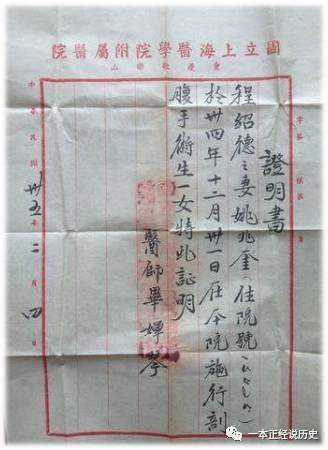 國立上海醫學院附屬醫院
重慶歌樂山
證明書
程紹德之妻姚兆奎(住院號)
於卅四年十二月卅一日在本院施行剖
腹手術生一女特此証明
醫師畢琴
中華民國卅五年二月四日
一本正经说历史